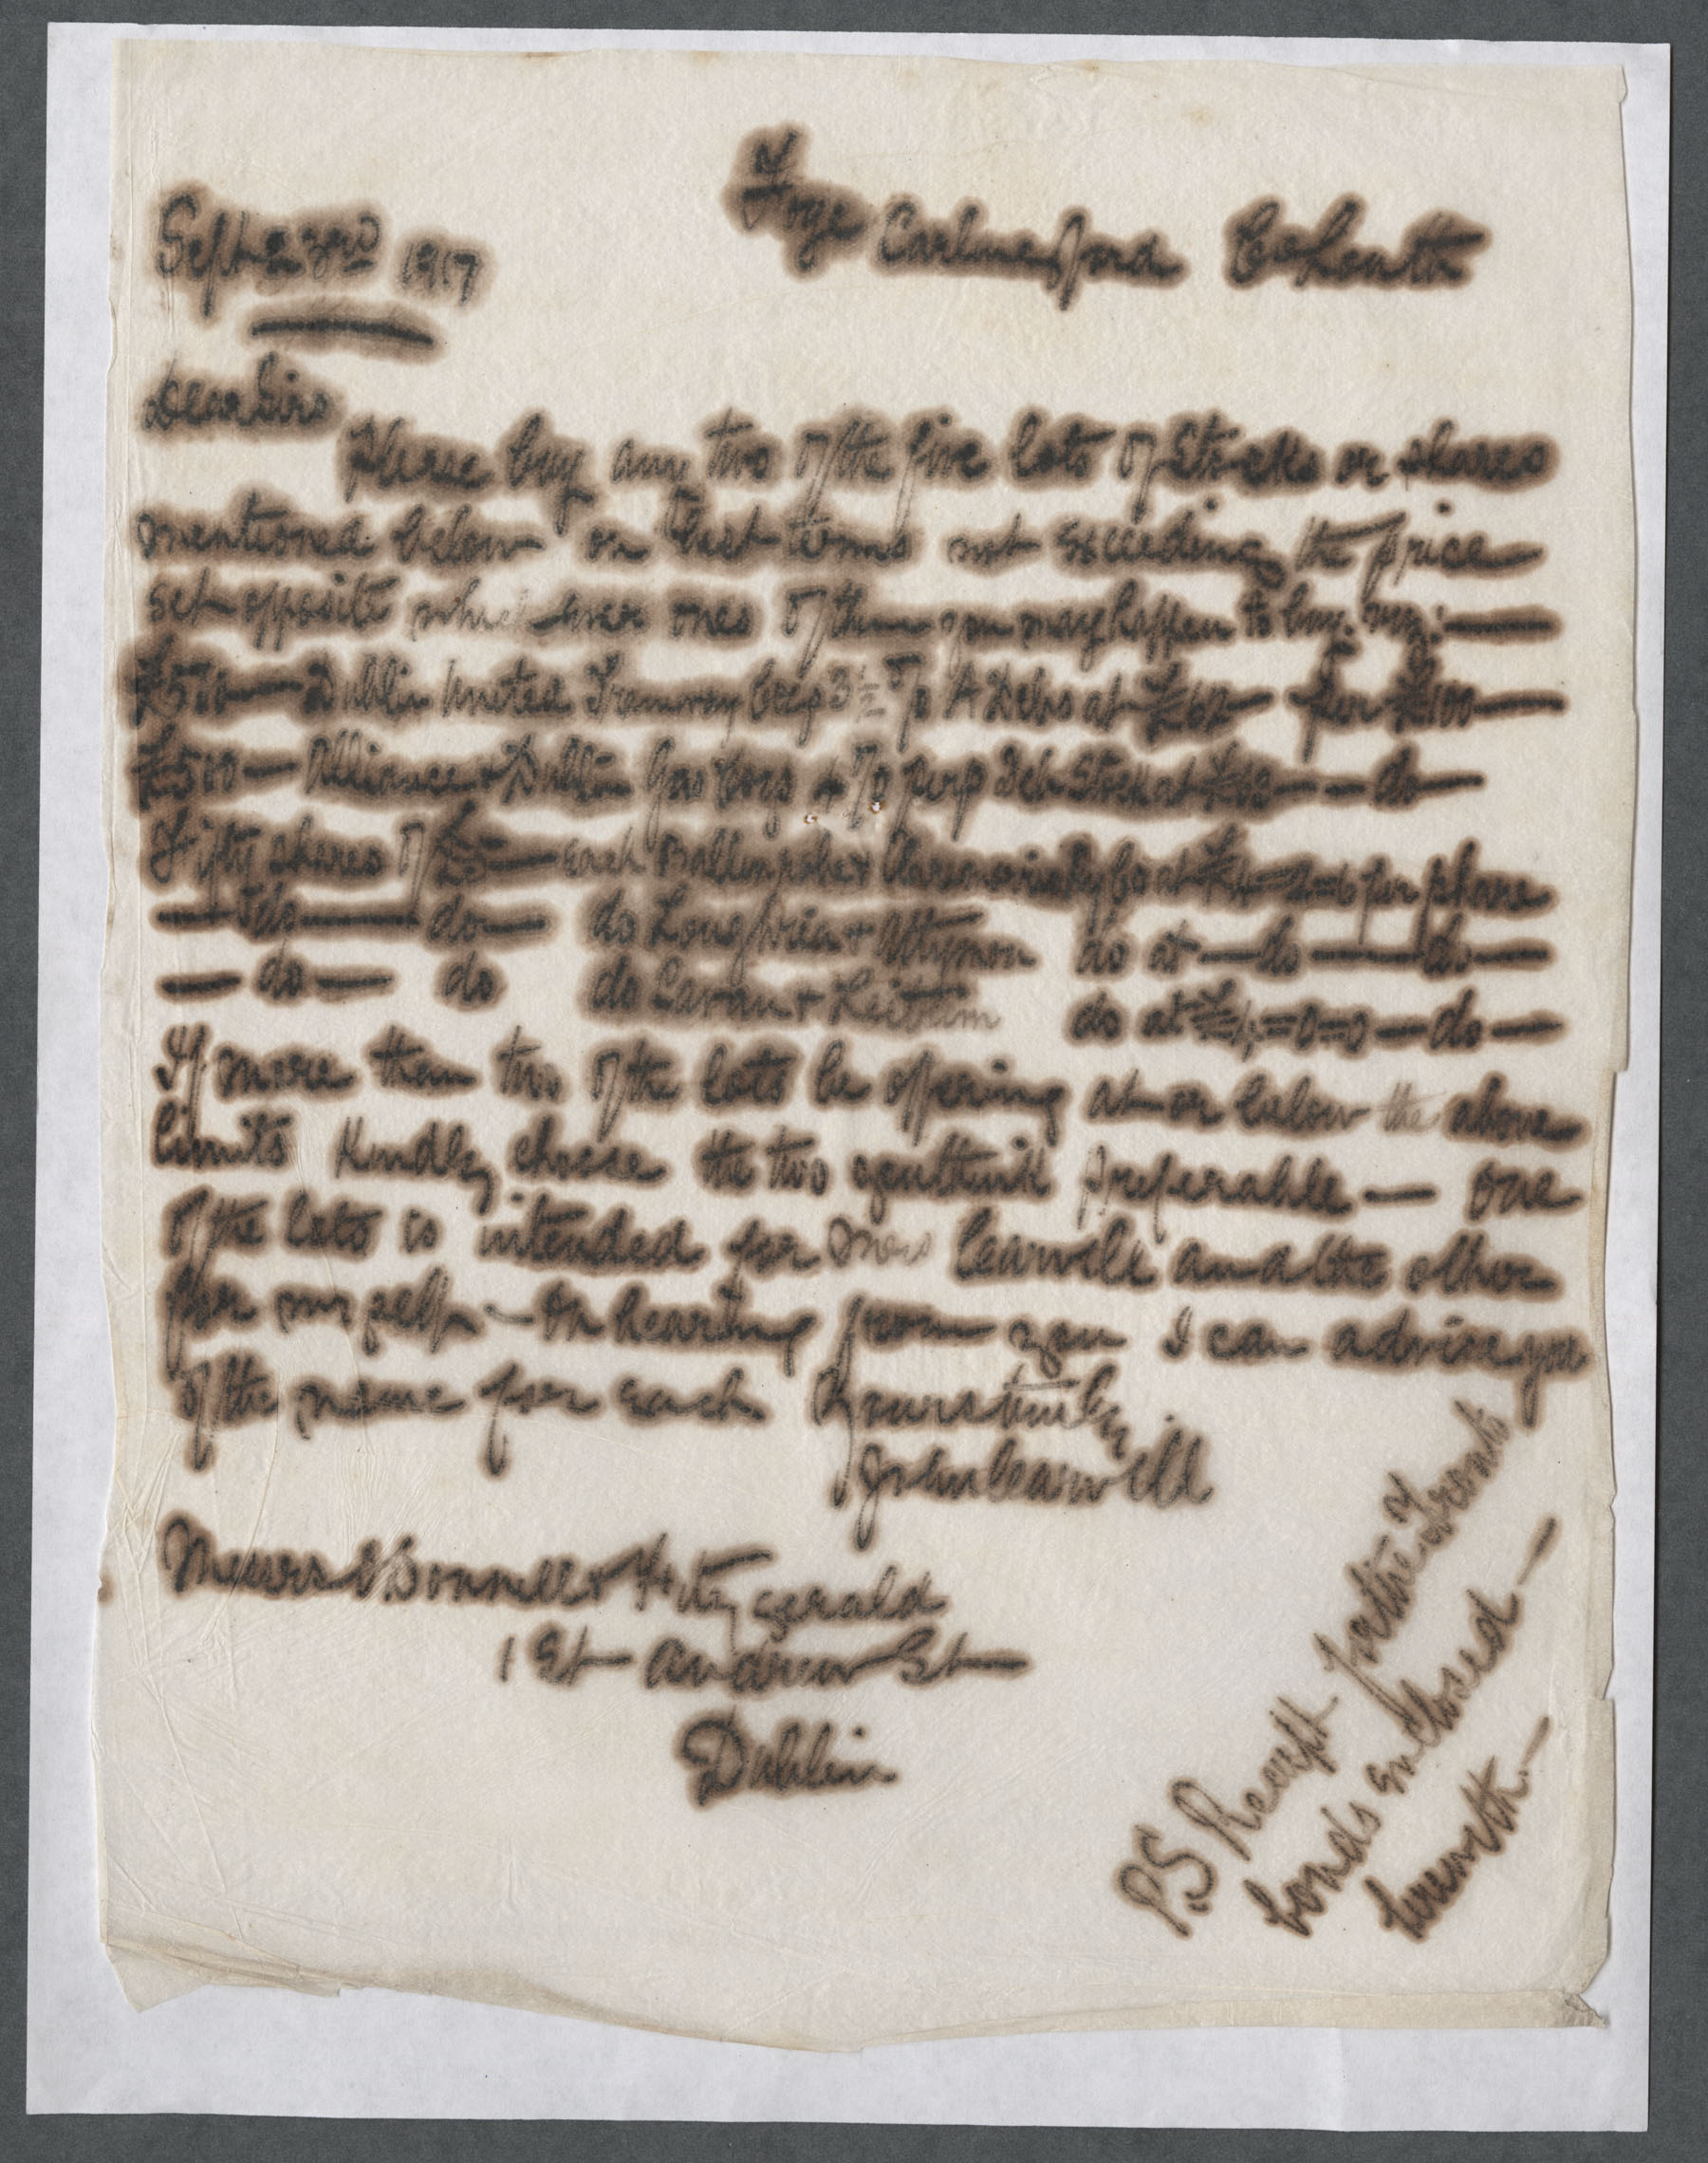 Sept 23rd 1917
Carlingford Co Louth
Dear Sirs
Please buy any two of the five lots of Stocks or shares
mentioned below on best terms not exceeding the price
set opposite whichever ones of them you may happen to buy. viz:—
£500— Dublin United Tramway Coys 3½ % A Debs at £62— per £100—
£500— Alliance & Dublin Gas Coys 4 % perp Deb Stock at — do—
Fifty shares of £5— each Ballinrobe & Claremorris Ry Co at £4=2=6 per share
— do— do— do Loughrea & Attymon do at— do— do—
— do— do do Cavan & Leitrim do at £4=0=0— do—
If more than two of the lots be offering at or below the above
limits Kindly choose the two you think preferable— one
of the lots is intended for Mrs and the other
for myself — On hearing from you I can advise you
of the name for each. Yours truly
John
Messrs O'Donnell & Fitzgerald
1 St Andrew St
Dublin
P.S Receipt for the
bonds enclosed—
herewith.—